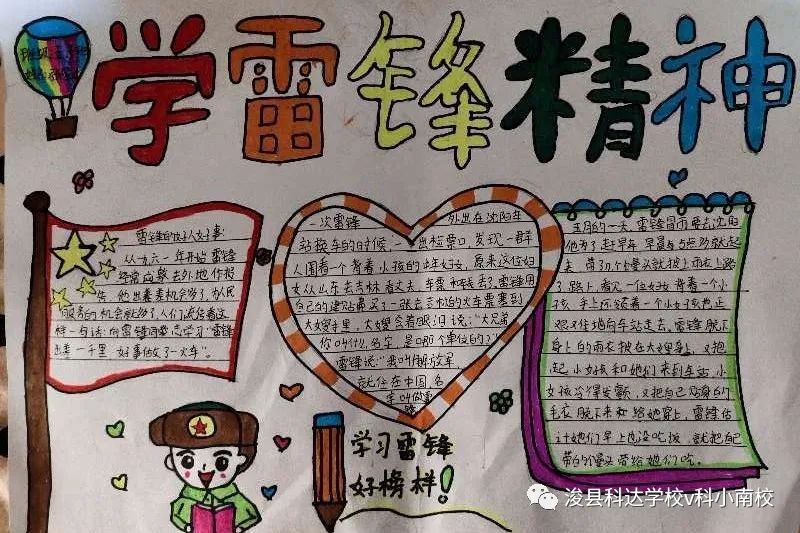 学雷锋精神
雷锋的好人好事
从一九六一年开始 雷锋
经常应邀去外地作报
告 他出差机会多了,为人民
服务的机会就多了,人们流传着这
样一句话:向雷锋同志学习"雷锋
出差一千里 好事做了一火车"。
一次雷锋 外出在沈阳车
站换车的时候,一出检票口,发现一群
人围看一个背着小孩的中年妇女,原来这位妇
女从山东去吉林看丈夫,车票和钱丢了,雷锋用
自己的津贴费买了一张去吉林的火车票塞到
大嫂手里,大嫂含着眼泪说:"大兄弟
你叫什么名字,是哪个单位的?"
雷锋说:"我叫解放军
就住在中国,名
字叫做雷锋
五月的一天,雷锋冒雨要去沈阳
他为了赶早车 早晨5点多就起
来 带了几个馒头就披上雨衣上路
了,路上,看见一位妇女 背着一个小
孩 手上还领着一个小女孩也正
艰难地向车站走去,雷锋脱下
身上的雨衣披在大嫂身上,又抱
起小女孩和她们来到车站,小
女孩冷得发颤,又把自己贴身的
毛衣脱下来 给她穿上,雷锋估
计她们早上也没吃饭,就把自己
带的馒头带给她们吃。
学习雷锋
好榜样!
浚县科达学校v科小南校